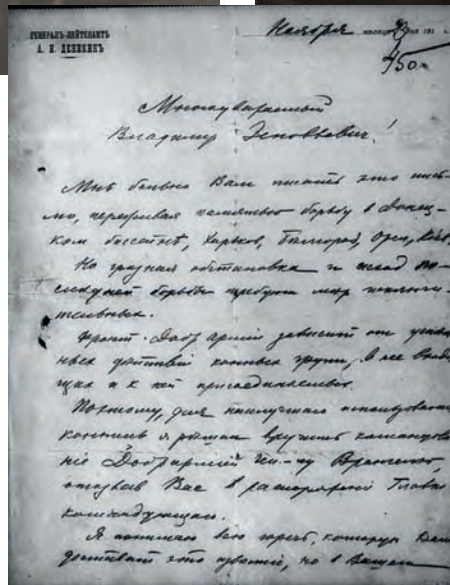 ГЕНЕРАЛЪ-ЛЕЙТЕНАНТЪ
А. И. ДЕНИКИНЪ
Ноября мѣсяца дня 191 г.
Многоуважаемый
Владимір Зенонович!
Мнѣ больно Вам писать это пись-
мо, переживая памятью борьбу в Донец-
ком бассейнѣ, Харьков, Бѣлгород, Орел, Кіев.
Но грозная обстановка и исход по-
слѣдней борьбы требует мѣр исключи-
тельных.
Фронт Добр арміи зависит от успѣш-
ных дѣйствій конных групп, в нее входя-
щих и к ней присоединяемых.
Поэтому, для наилучшаго использованія
конницы я рѣшил вручить командова-
ніе Добрарміей ген-лу Врангелю,
отозвав Вас в распоряженіе Главно
командующаго.
Я понимаю всю горечь, которую Вам
доставит это извѣстіе, но в Вашем